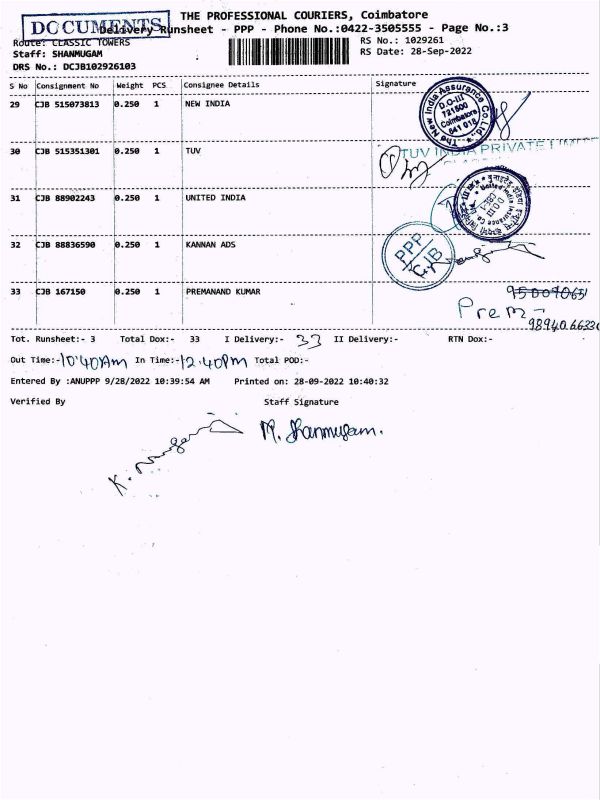 THE PROFESSIONAL COURIERS, Coimbatore
DOCUMENTS
Delivery Runsheet - PPP - Phone No.:0422-3505555 - Page No.:3
Route: CLASSIC TOWERS
RS No.: 1029261
Staff: SHANMUGAM
RS Date: 28-Sep-2022
DRS No.: DCJB102926103
S No Consignment No Weight PCS Consignee Details Signature
29 CJB 515073813 0.250 1 NEW INDIA
The New India Assurance Co.Ltd.
D.O-III
721500
Coimbatore
641 018
30 CJB 515351301 0.250 1 TUV
TUV INDIA PRIVATE LIMITED
31 CJB 88902243 0.250 1 UNITED INDIA
United India Insurance Co
32 CJB 88836590 0.250 1 KANNAN ADS
PPP
CJB
33 CJB 167150 0.250 1 PREMANAND KUMAR
Prem
Tot. Runsheet:- 3 Total Dox:- 33 I Delivery:- 33 II Delivery:- RTN Dox:-
Out Time:-10:40Am In Time:-12.40Pm Total POD:-
Entered By :ANUPPP 9/28/2022 10:39:54 AM Printed on: 28-09-2022 10:40:32
Verified By Staff Signature
M. Shanmugam.